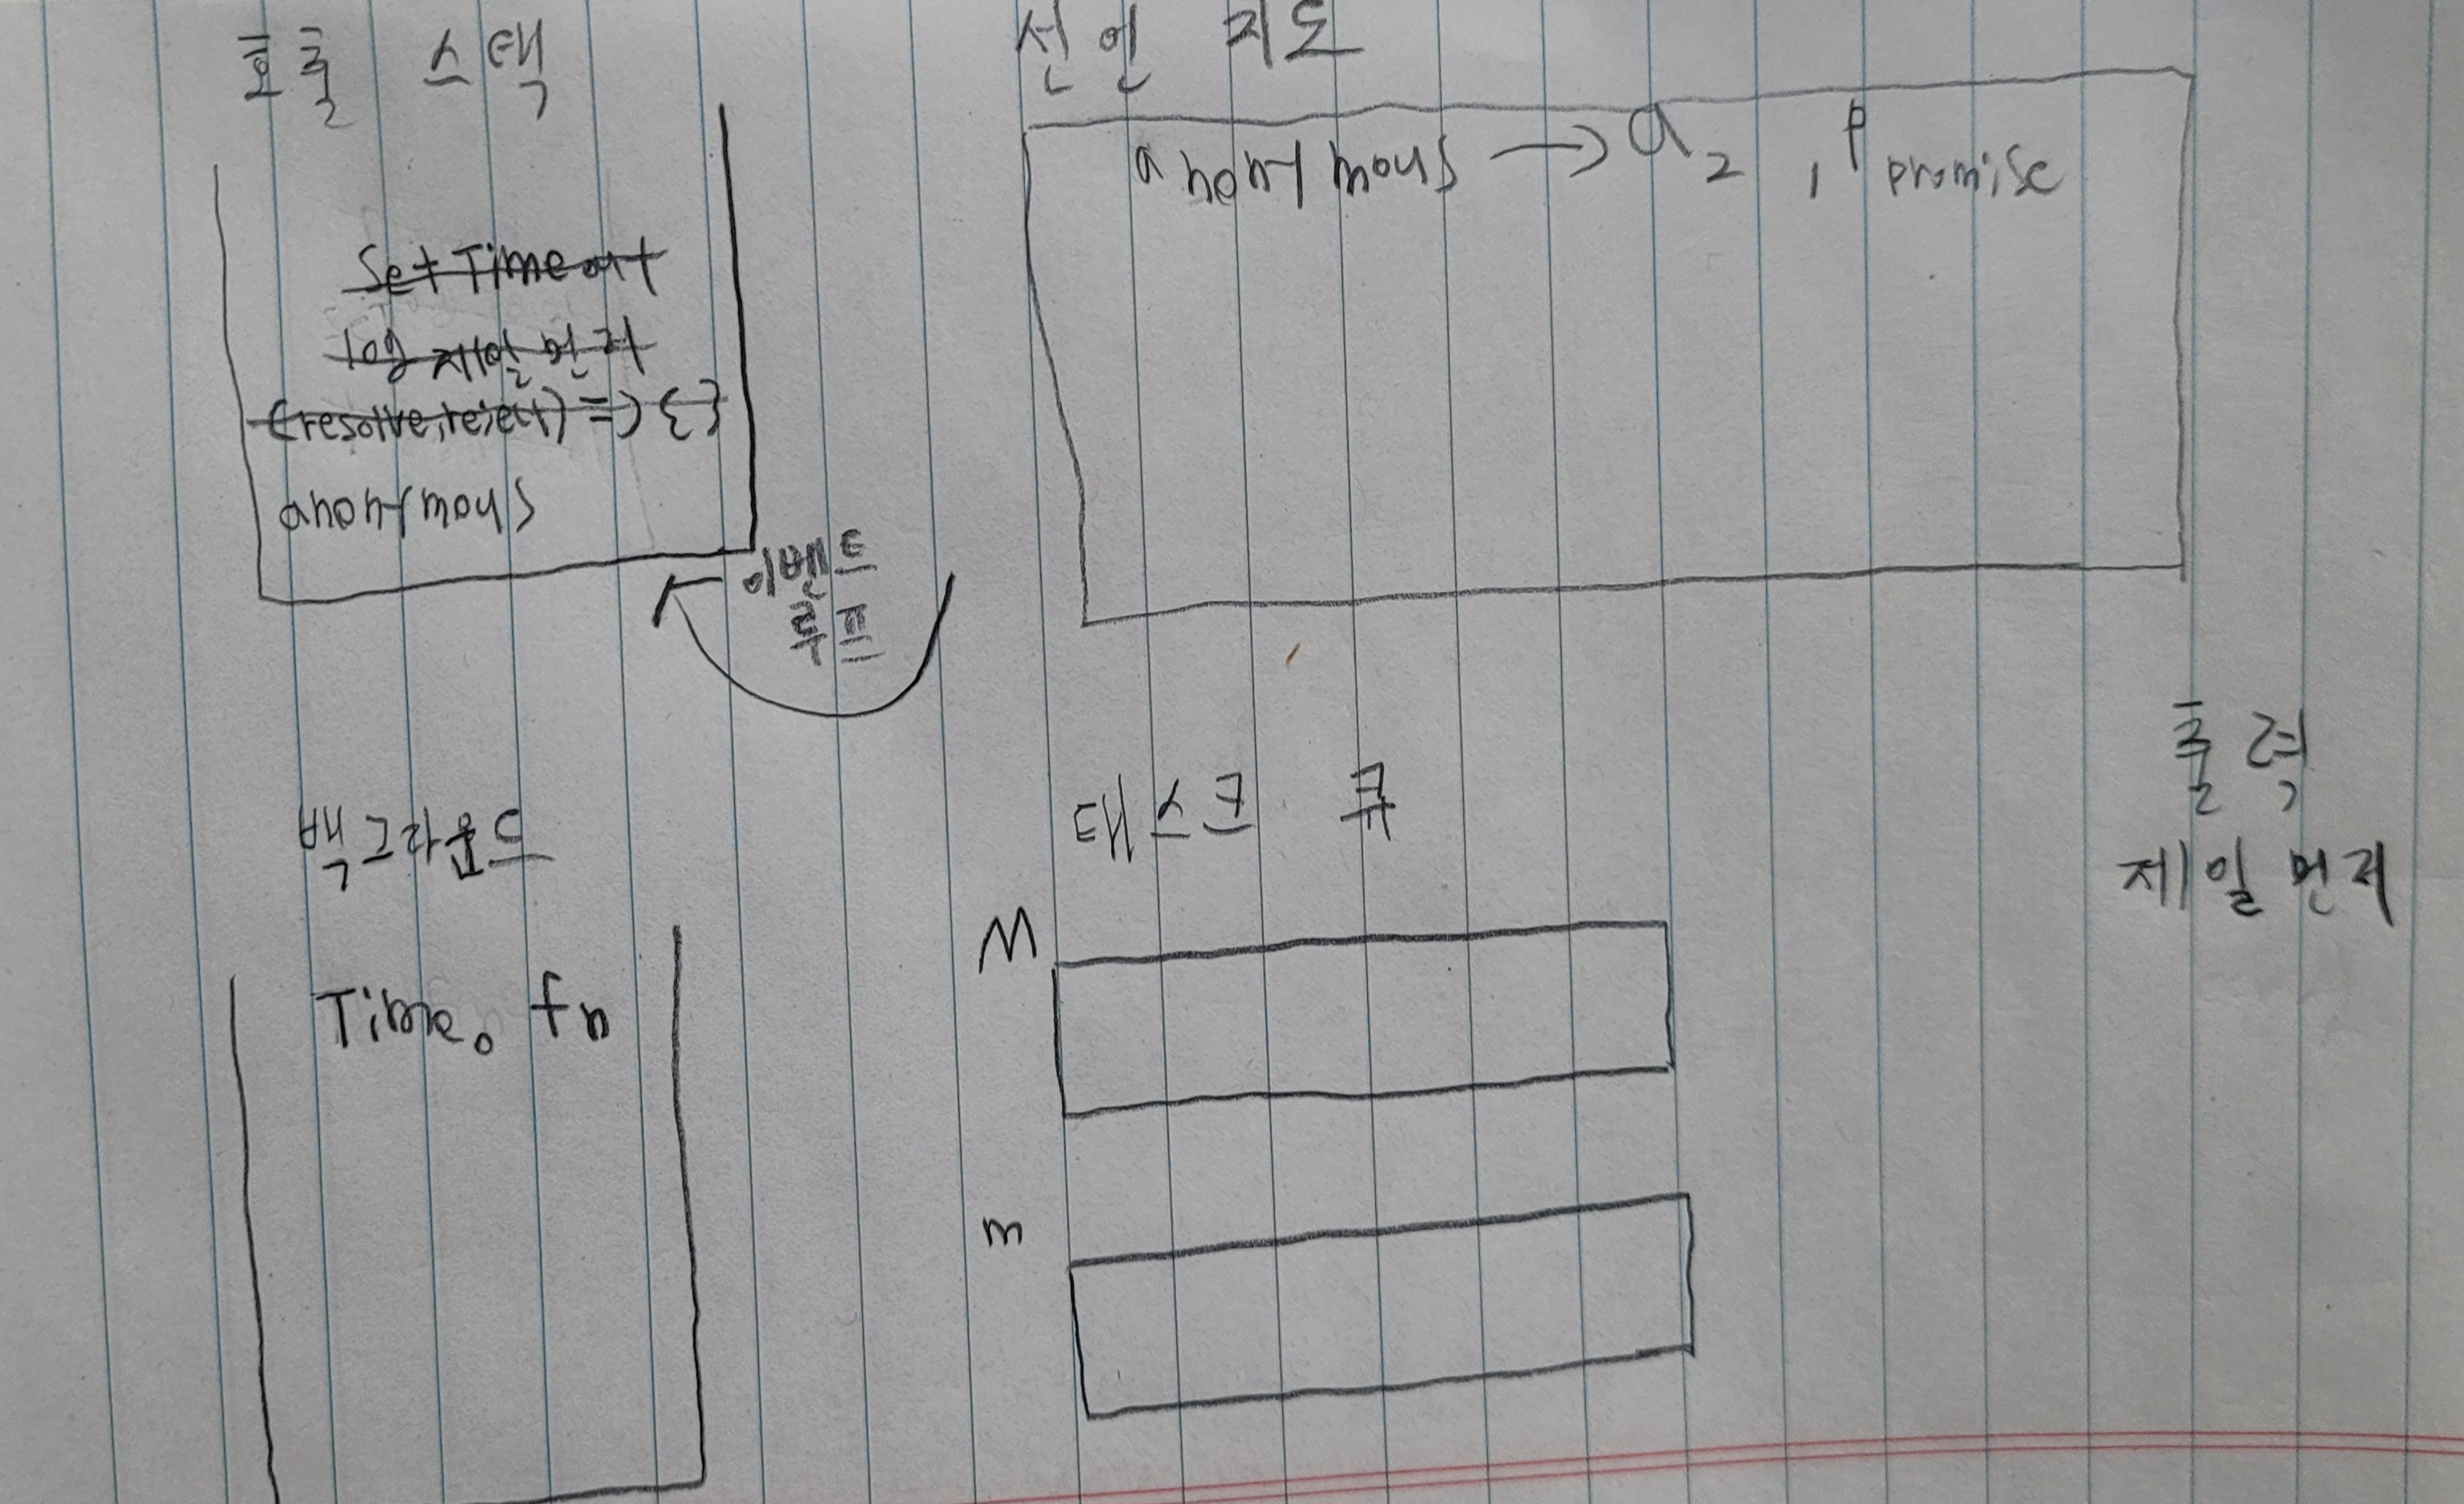 호출 스택
SetTimeout
log 제일 먼저
(resolve, reject) => {}
anonymous
이벤트
루프
선언 지도
anonymous → a 2, P promise
백그라운드
Time 0 fn
태스크 큐
M
m
출력
제일 먼저